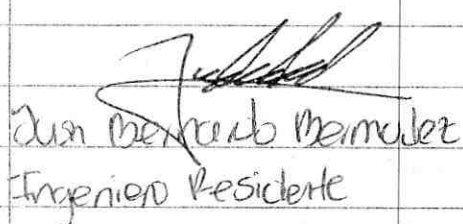 Juan Bernardo Bermudez
Ingeniero Residente